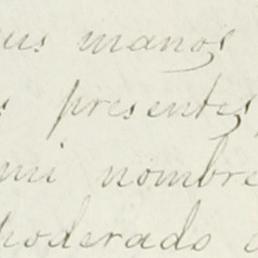 sus manos
s presentes,
mi nombre
poderado